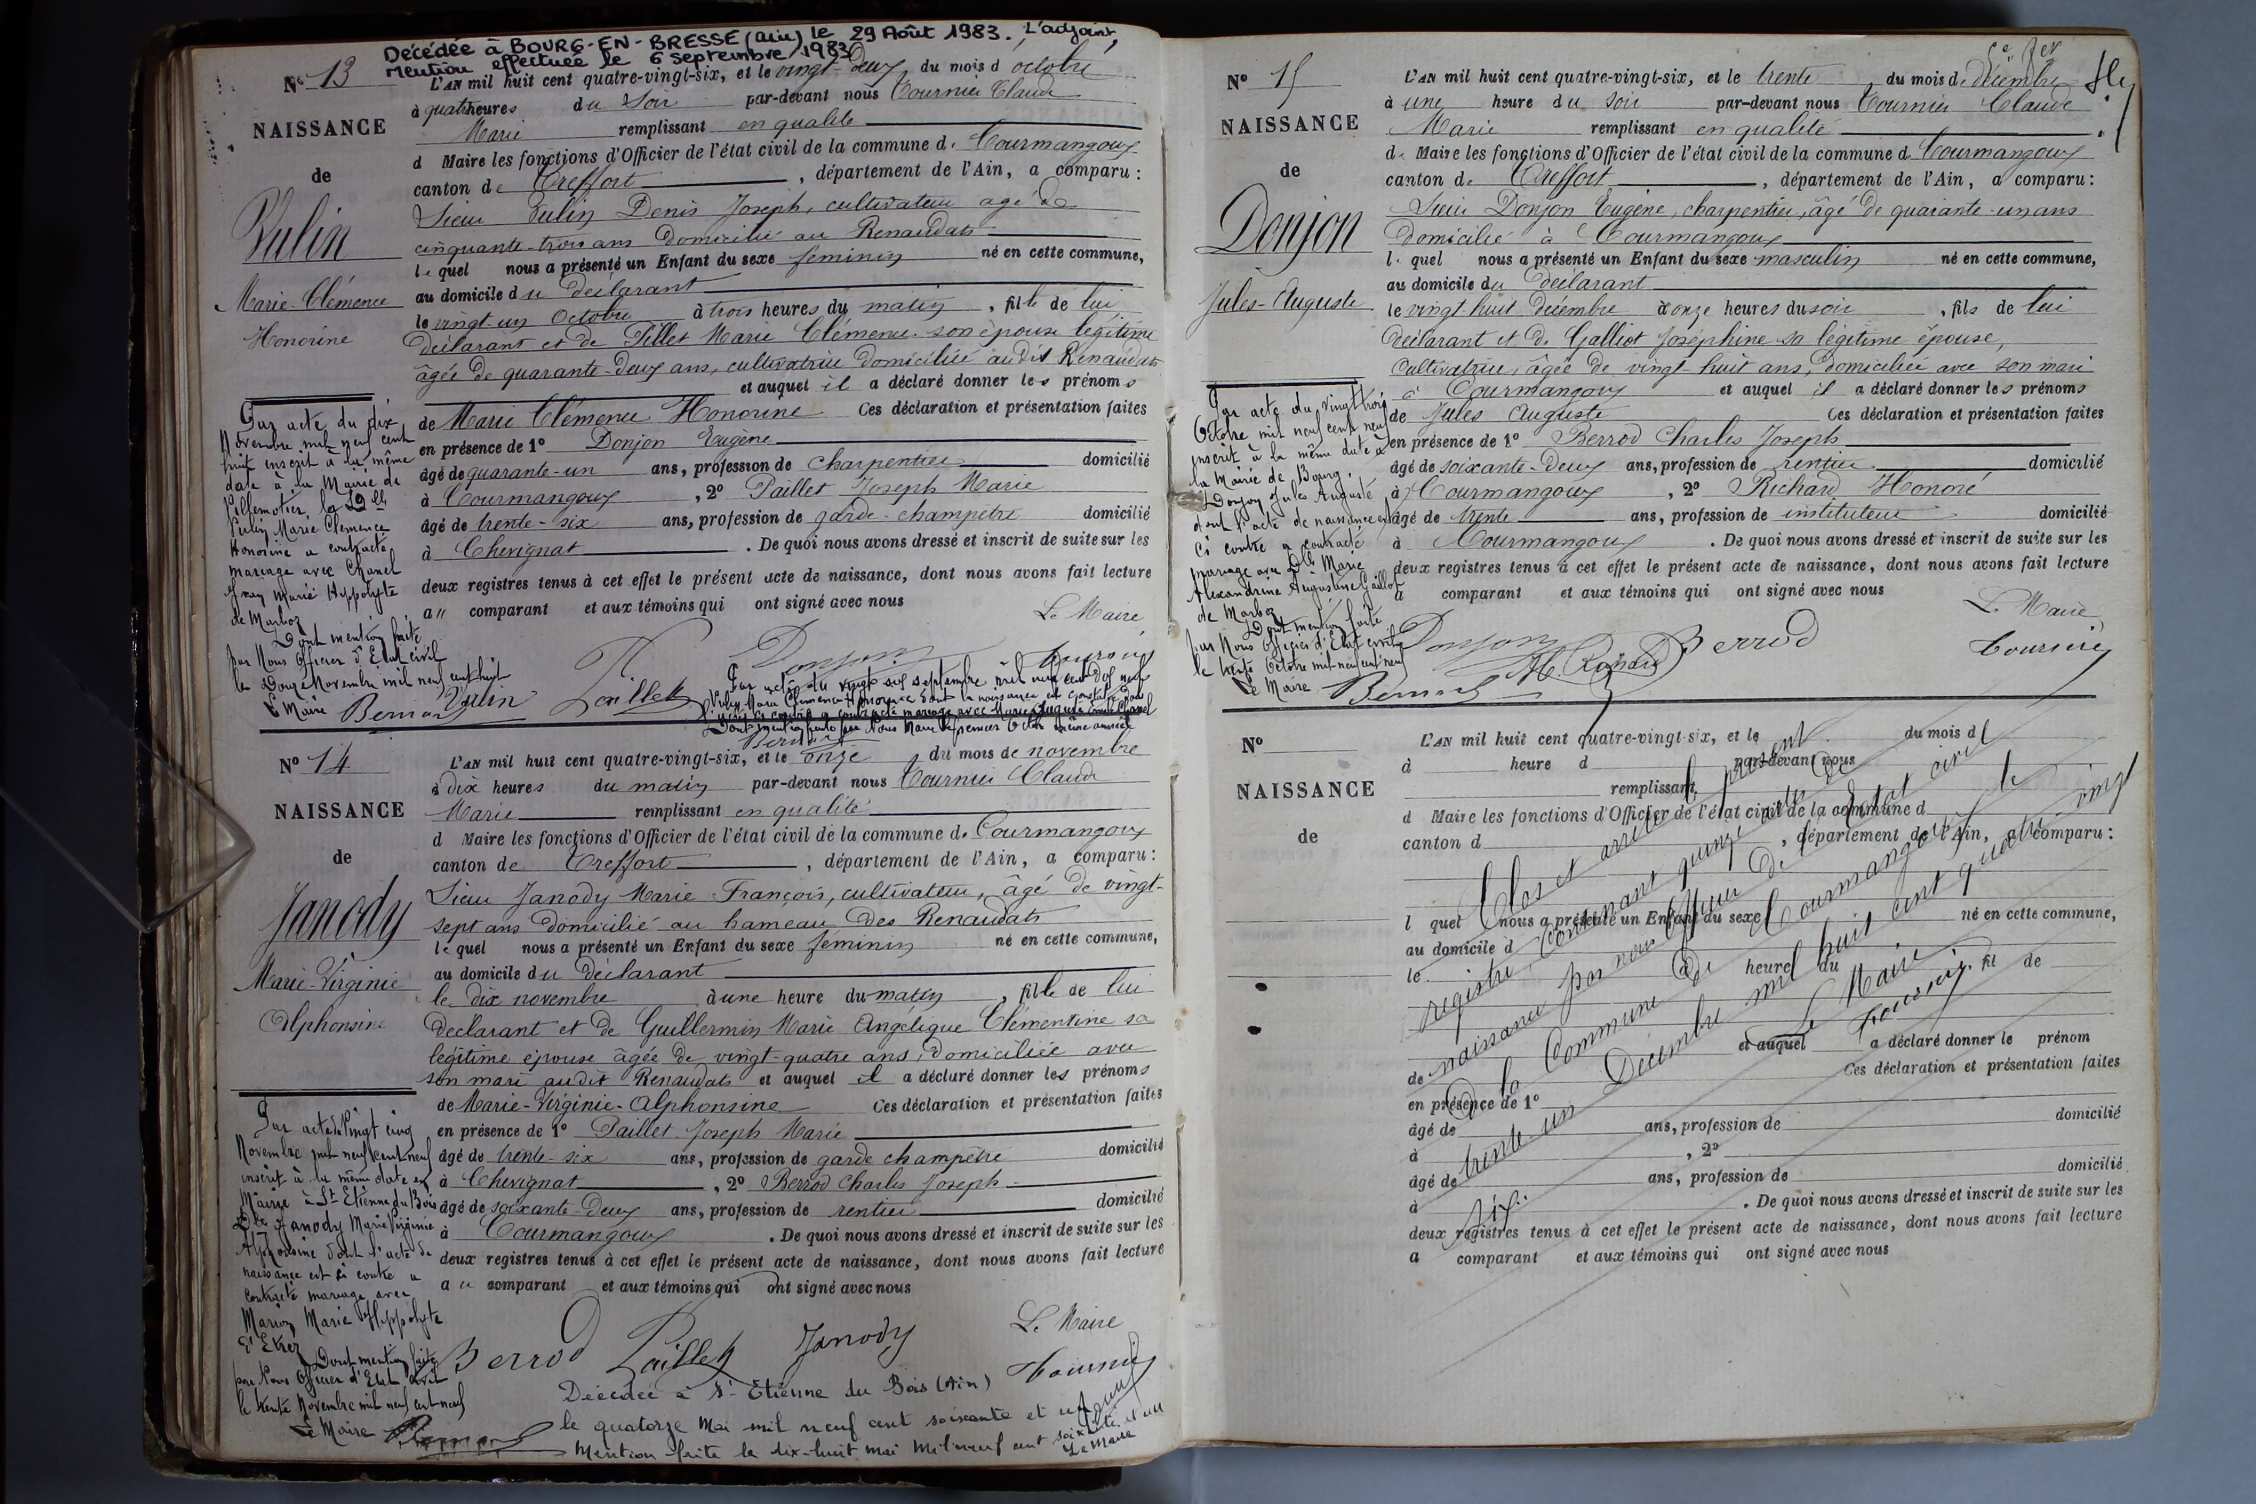 Décédée à BOURG-EN-BRESSE (Ain) le 29 Août 1983. L'adjoint,
Mention effectuée le 6 Septembre 1983
N° 13
NAISSANCE
de
Vulin
Marie-Clémence
Honorine
L'AN mil huit cent quatre-vingt-six, et le vingt-deux du mois d'octobre
à quatre heures du Soir par-devant nous Tournier Claude
Marie remplissant en qualité
d Maire les fonctions d'Officier de l'état civil de la commune de Courmangoux
canton de Treffort, département de l'Ain, a comparu:
Sieur Vulin Denis Joseph, cultivateur agé de
cinquante-trois ans domicilié au Renaudats
lequel nous a présenté un Enfant du sexe féminin né en cette commune,
au domicile du déclarant
le vingt-un Octobre à trois heures du matin, fille de lui
déclarant et de Pillet Marie Clémence son épouse légitime
âgée de quarante-deux ans, cultivatrice domiciliée audit Renaudats
et auquel il a déclaré donner les prénoms
de Marie Clémence Honorine Ces déclaration et présentation faites
en présence de 1° Donjon Eugène
âgé de quarante-un ans, profession de charpentier domicilié
à Courmangoux, 2° Paillet Joseph Marie
âgé de trente-six ans, profession de garde-champêtre domicilié
à Chevignat. De quoi nous avons dressé et inscrit de suite sur les
deux registres tenus à cet effet le présent acte de naissance, dont nous avons fait lecture
au comparant et aux témoins qui ont signé avec nous
Le Maire
Donjon Tournier
Vulin Paillet
Par acte du dix
Novembre mil neuf cent
huit inscrit à la même
date à la Mairie de
Villemotier, la Dlle
Vulin Marie Clémence
Honorine a contracté
mariage avec Chanel
Jean Marie Hippolyte
de Marboz
Dont mention faite
par Nous Officier d'Etat civil
le Douze Novembre mil neuf cent huit
Le Maire Bernard
Par acte du vingt six septembre mil neuf cent dix neuf
Vulin Marie Clémence Honorine dont la naissance est constatée dans
l'acte ci contre a contracté mariage avec Marie Chanel
Dont mention faite par Nous Maire le premier Octobre même année
Bernard
N° 14
NAISSANCE
de
Janody
Marie-Virginie
Alphonsine
L'AN mil huit cent quatre-vingt-six, et le onze du mois de novembre
à dix heures du matin par-devant nous Tournier Claude
Marie remplissant en qualité
d Maire les fonctions d'Officier de l'état civil de la commune de Courmangoux
canton de Treffort, département de l'Ain, a comparu:
Sieur Janody Marie-François, cultivateur, âgé de vingt-
sept ans domicilié au hameau des Renaudats
lequel nous a présenté un Enfant du sexe féminin né en cette commune,
au domicile du déclarant
le dix novembre à une heure du matin, fille de lui
déclarant et de Guillermin Marie Angélique Clémentine sa
légitime épouse âgée de vingt-quatre ans, domiciliée avec
son mari audit Renaudats et auquel il a déclaré donner les prénoms
de Marie-Virginie-Alphonsine Ces déclaration et présentation faites
en présence de 1° Paillet Joseph Marie
âgé de trente-six ans, profession de garde champêtre domicilié
à Chevignat, 2° Berrod Charles Joseph
âgé de soixante-deux ans, profession de rentier domicilié
à Courmangoux. De quoi nous avons dressé et inscrit de suite sur les
deux registres tenus à cet effet le présent acte de naissance, dont nous avons fait lecture
au comparant et aux témoins qui ont signé avec nous
Le Maire
Berrod Paillet Janody Tournier
Par acte du Vingt cinq
Novembre mil neuf cent neuf
inscrit à la même date en
Mairie à St Etienne du Bois
Dlle Janody Marie Virginie
Alphonsine dont l'acte de
naissance est ci contre a
contracté mariage avec
Marion Marie Hippolyte
d'Etrez
Dont mention faite
par Nous Officier d'Etat civil
le trente Novembre mil neuf cent neuf
Le Maire Bernard
Décédée à St Etienne du Bois (Ain)
le quatorze Mai mil neuf cent soixante et un
Mention faite le dix-huit mai mil neuf cent soixante et un
Le Maire
N° 15
NAISSANCE
de
Donjon
Jules-Auguste
L'AN mil huit cent quatre-vingt-six, et le trente du mois de décembre
à une heure du soir par-devant nous Tournier Claude
Marie remplissant en qualité
de Maire les fonctions d'Officier de l'état civil de la commune d Courmangoux
canton de Treffort, département de l'Ain, a comparu:
Sieur Donjon Eugène, charpentier, âgé de quarante-un ans
domicilié à Courmangoux
lequel nous a présenté un Enfant du sexe masculin né en cette commune,
au domicile du déclarant
le vingt huit décembre à onze heures du soir, fils de lui
déclarant et de Galliot Joséphine sa légitime épouse,
cultivatrice, âgée de vingt-huit ans, domiciliée avec son mari
à Courmangoux et auquel il a déclaré donner les prénoms
de Jules Auguste Ces déclaration et présentation faites
en présence de 1° Berrod Charles Joseph
âgé de soixante-deux ans, profession de rentier domicilié
à Courmangoux, 2° Richard Honoré
âgé de trente ans, profession de instituteur domicilié
à Courmangoux. De quoi nous avons dressé et inscrit de suite sur les
deux registres tenus à cet effet le présent acte de naissance, dont nous avons fait lecture
a comparant et aux témoins qui ont signé avec nous
Le Maire
Donjon H. Richard Berrod Tournier
Par acte du vingt trois
Octobre mil neuf cent neuf
inscrit à la même date à
la Mairie de Bourg,
Donjon Jules Auguste
dont l'acte de naissance est
ci contre a contracté
mariage avec Dlle Marie
Alexandrine Augustine Gaillot
de Marboz
Dont mention faite
par Nous Officier d'Etat civil
le trente Octobre mil neuf cent neuf
Le Maire Bernard
N°
NAISSANCE
de
L'AN mil huit cent quatre-vingt-six, et le du mois d
à heure d par-devant nous
remplissant
d Maire les fonctions d'Officier de l'état civil de la commune d
canton d, département de l'Ain, a comparu:
l quel nous a présenté un Enfant du sexe né en cette commune,
au domicile d
le à heure du, fil de
et auquel a déclaré donner le prénom
de Ces déclaration et présentation faites
en présence de 1°
âgé de ans, profession de domicilié
à, 2°
âgé de ans, profession de domicilié
à. De quoi nous avons dressé et inscrit de suite sur les
deux registres tenus à cet effet le présent acte de naissance, dont nous avons fait lecture
a comparant et aux témoins qui ont signé avec nous
Clos et arrêté le présent
registre contenant quinze actes de
naissance par nous Officier de l'Etat civil
de la Commune de Courmangoux le
trente un Décembre mil huit cent quatre vingt
six.
Le Maire
Tournier